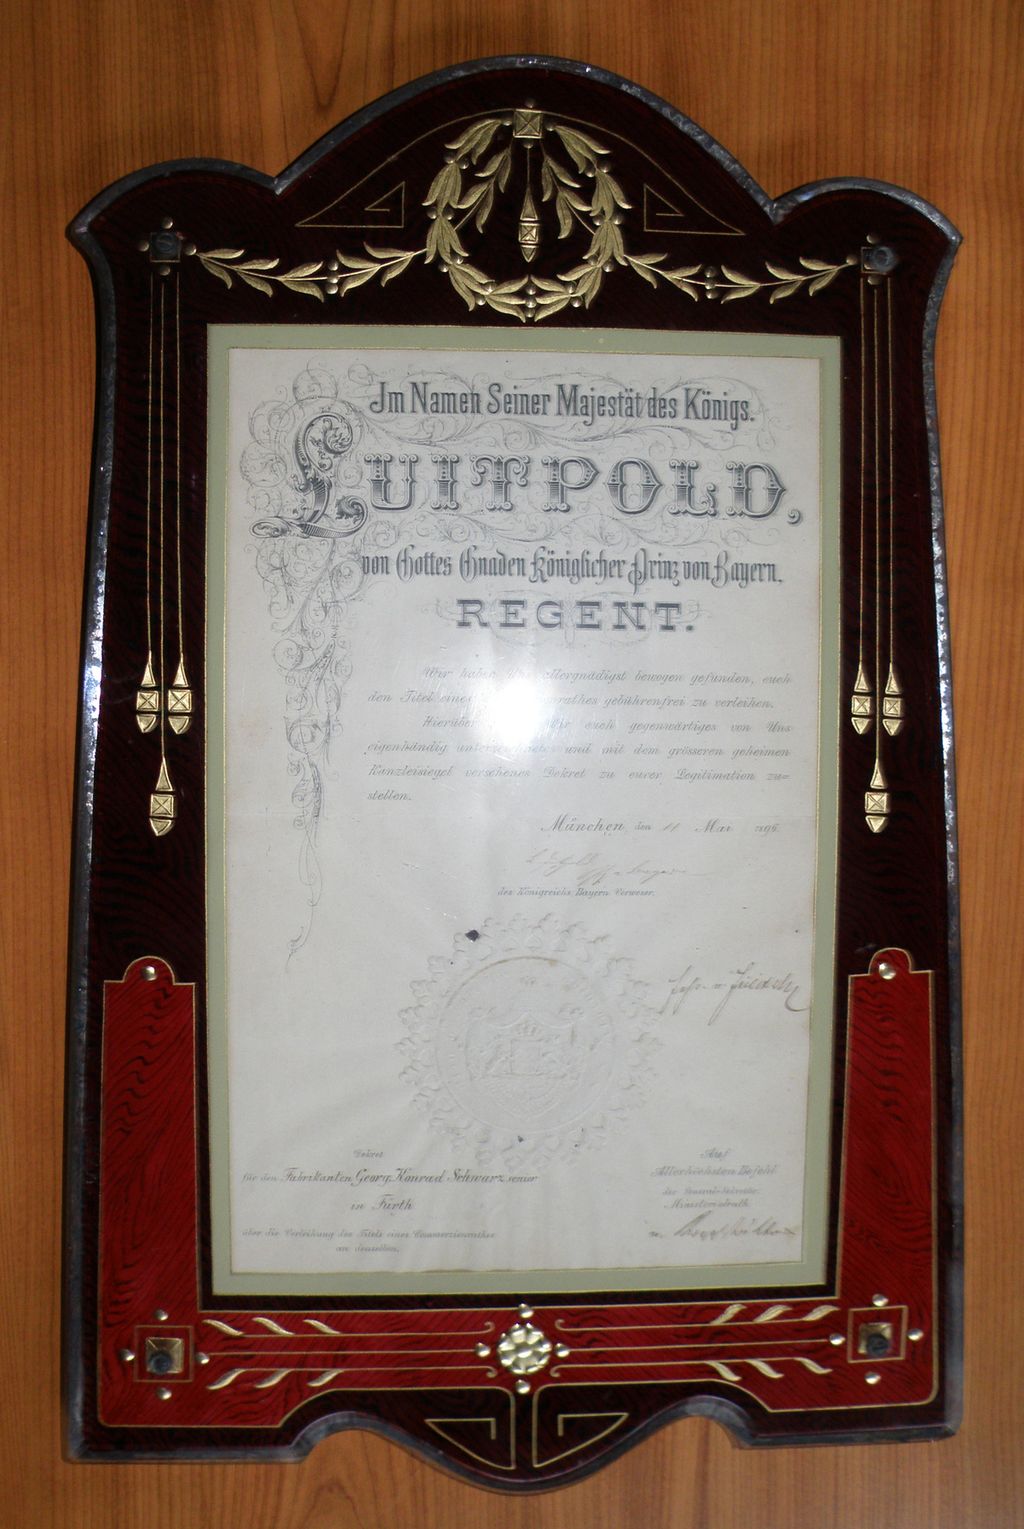 Im Namen Seiner Majestät des Königs.
LUITPOLD,
von Gottes Gnaden Königlicher Prinz von Bayern,
REGENT.
Wir haben Uns allergnädigst bewogen gefunden, euch
den Titel eines gebührenfrei zu verleihen.
Hierüber Wir euch gegenwärtiges von Uns
eigenhändig unterzeichnetes und mit dem grösseren geheimen
Kanzleisiegel versehenes Dekret zu eurer Legitimation zu=
stellen.
München, den 11 Mai 1896.
des Königreichs Bayern Verweser.
Dekret
für den Fabrikanten Georg Konrad Schwarz senior
in Fürth
über die Verleihung des Titels eines Commerzienrathes
an denselben.
Auf
Allerhöchsten Befehl
der General-Sekretär
Ministerialrath